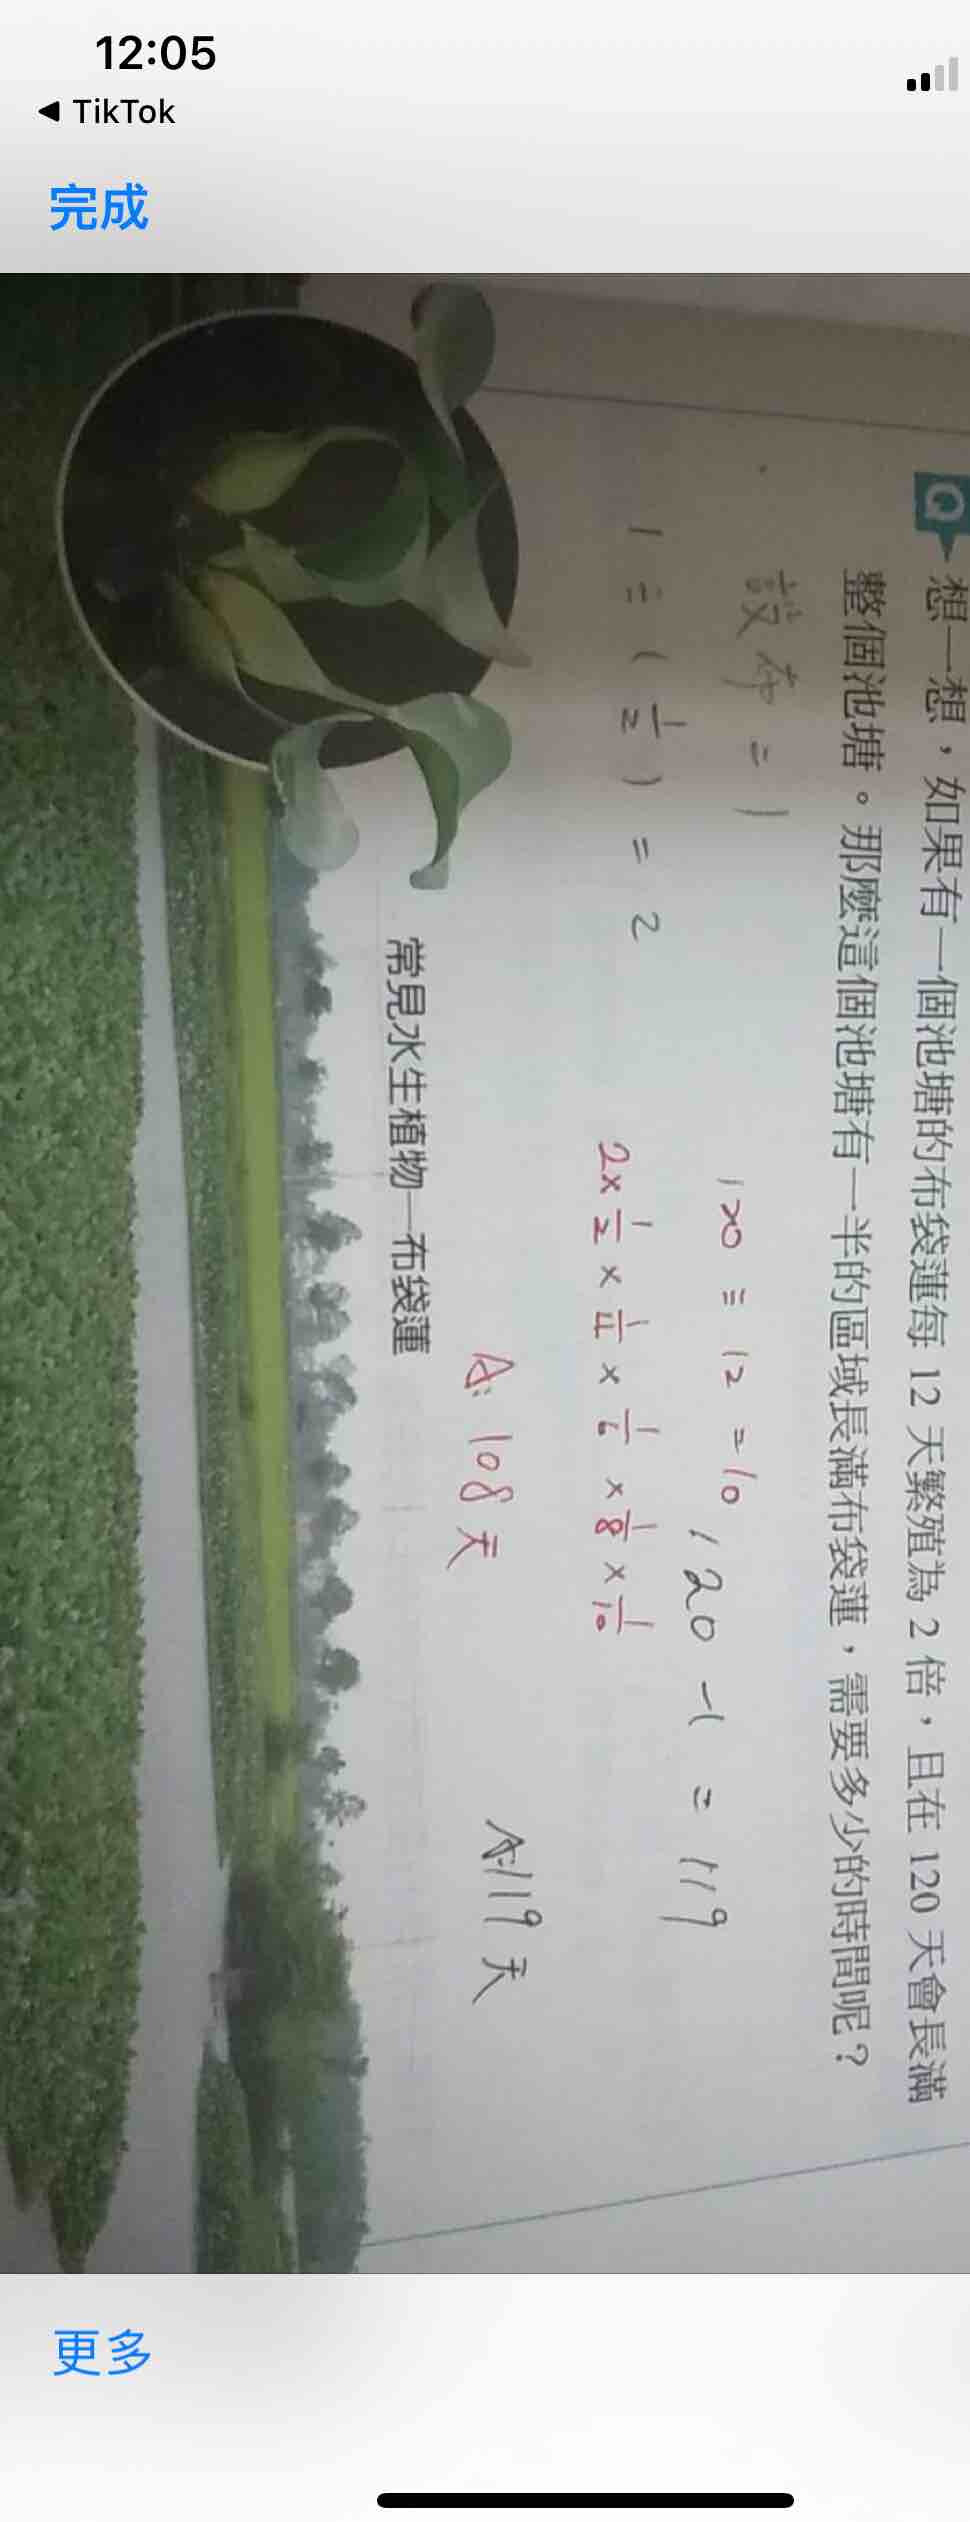 12:05
◀ TikTok
完成
Q 想一想，如果有一個池塘的布袋蓮每 12 天繁殖為 2 倍，且在 120 天會長滿
整個池塘。那麼這個池塘有一半的區域長滿布袋蓮，需要多少的時間呢？
設布=1
1÷(1/2)=2
120÷12=10
120-1=119
2×1/2×1/4×1/6×1/8×1/10
A:108天
A:119天
常見水生植物—布袋蓮
更多